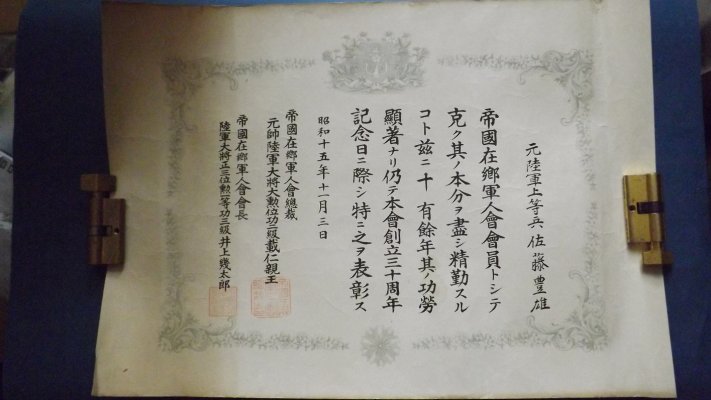 元陸軍上等兵佐藤豊雄
帝國在郷軍人會會員トシテ
克ク其ノ本分ヲ盡シ精勤スル
コト茲ニ十有餘年其ノ功勞
顯著ナリ仍テ本會創立三十周年
記念日ニ際シ特ニ之ヲ表彰ス
昭和十五年十一月三日
帝國在郷軍人會總裁
元帥陸軍大將大勲位功二級載仁親王
帝國在郷軍人會會長
陸軍大將正三位勲一等功三級井上幾太郎